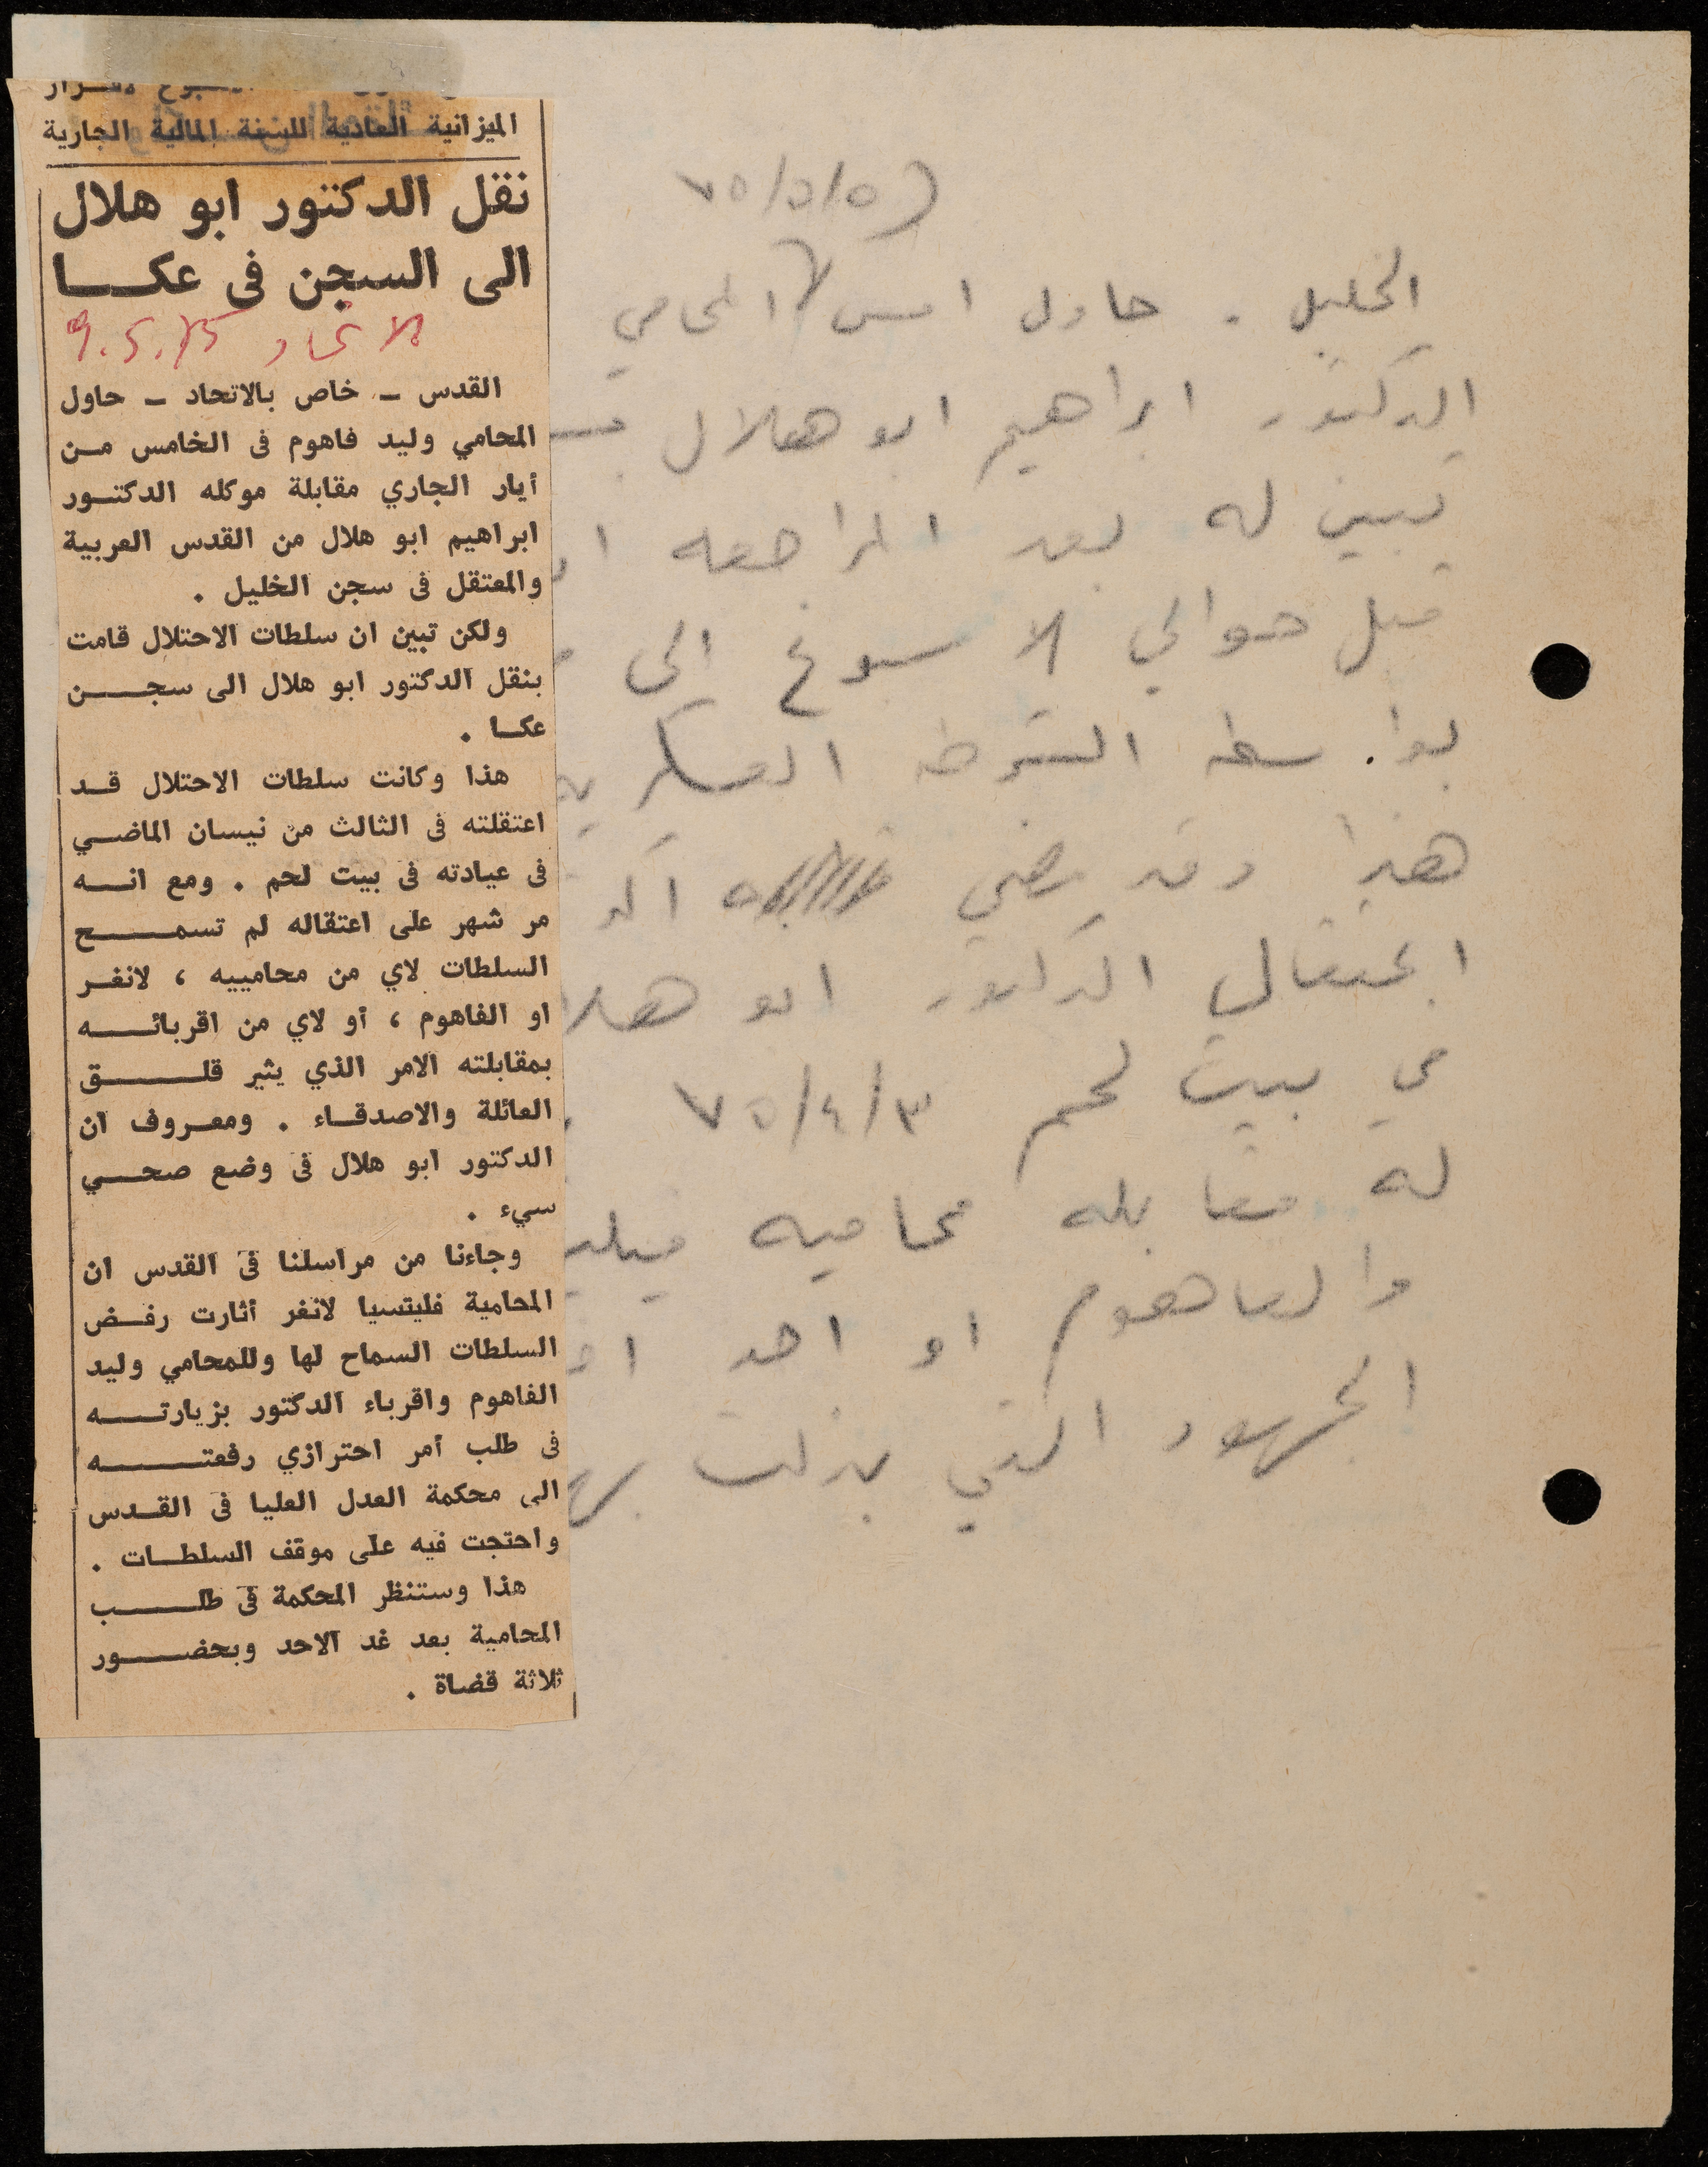 الميزانية العادية للسنة المالية الجارية
نقل الدكتور ابو هلال
الى السجن في عكـــا
الاتحاد 9.5.75
القدس ــ خاص بالاتحاد ــ حاول
المحامي وليد فاهوم في الخامس مـن
أيار الجاري مقابلة موكله الدكتـور
ابراهيم ابو هلال من القدس العربية
والمعتقل في سجن الخليل .
ولكن تبين ان سلطات الاحتلال قامت
بنقل الدكتور ابو هلال الى سجـــن
عكـا .
هذا وكانت سلطات الاحتلال قـد
اعتقلته في الثالث من نيسان الماضـي
في عيادته في بيت لحم . ومع انــه
مر شهر على اعتقاله لم تسمــــح
السلطات لاي من محامييه ، لانغـر
او الفاهوم ، أو لاي من اقربائــه
بمقابلته الامر الذي يثير قلـــق
العائلة والاصدقـاء . ومعـروف ان
الدكتور ابو هلال في وضع صحــي
سيء .
وجاءنا من مراسلنا في القدس ان
المحامية فليتسيا لانغر أثارت رفــض
السلطات السماح لها وللمحامي وليد
الفاهوم واقرباء الدكتور بزيارتـــه
في طلب أمر احترازي رفعتـــــه
الى محكمة العدل العليا في القـدس
واحتجت فيه على موقف السلطـات .
هذا وستنظر المحكمة في طلـــب
المحامية بعد غد الاحد وبحضـــور
ثلاثة قضاة .
٧٥/٥/٥
الخليل . حاول امس المحامي
الدكتور ابراهيم ابو هلال
تبين له بعد المراجعه
قبل حوالي الاسبوع الى
بواسطه الشرطه العسكريه
هذا وقد مضى
اعتقال الدكتور ابو هلا
في بيت لحم ٧٥/٤/٣
له مقابله محاميه
والفاهوم او احد
الجهود التي بذلت